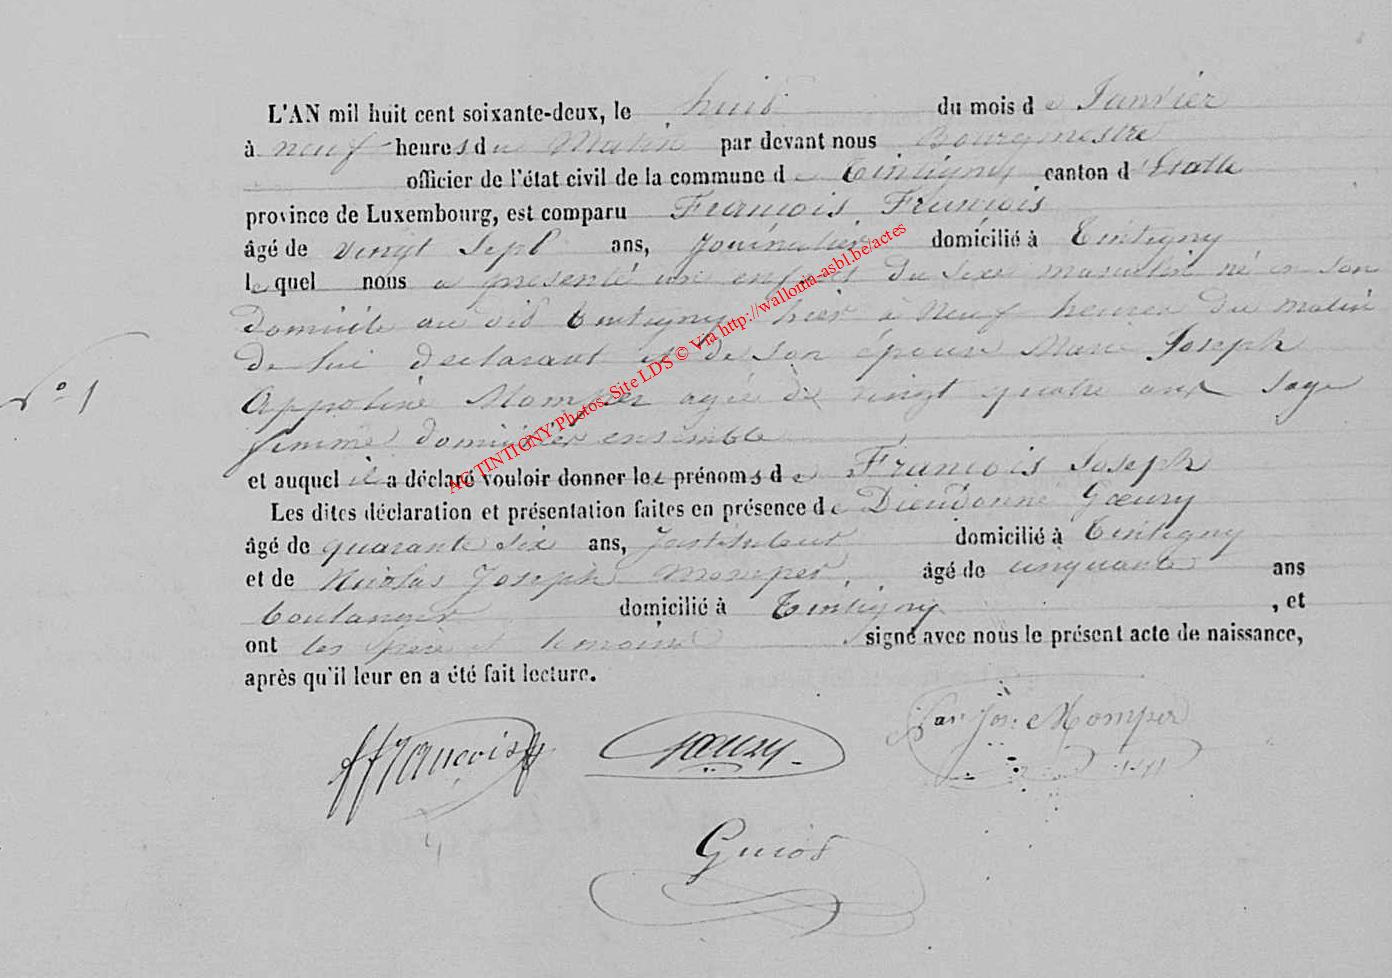 L'AN mil huit cent soixante-deux, le huit du mois de Janvier
à neuf heures du Matin par devant nous Bourgmestre
officier de l'état civil de la commune de Tintigny canton d'Etalle
province de Luxembourg, est comparu François François
âgé de vingt sept ans, Journalier domicilié à Tintigny
lequel nous a présenté un enfant du sexe masculin né en son
domicile au dit Tintigny hier à Neuf heures du matin
de lui déclarant et de son épouse Marie Joseph
N° 1
Appoline Momper agée de vingt quatre ans sage
femme domiciliés ensemble
et auquel il a déclaré vouloir donner les prénoms de François Joseph
Les dites déclaration et présentation faites en présence de Dieudonné Gœury
âgé de quarante six ans, Instituteur domicilié à Tintigny
et de Nicolas Joseph Momper, âgé de cinquante ans
boulanger domicilié à Tintigny , et
ont les père et témoins signé avec nous le présent acte de naissance,
après qu'il leur en a été fait lecture.
ffrançois Gœury Jos. Momper
Guiot
AC TINTIGNY Photos. Site LDS © Via http://wallonia-asbl.be/actes